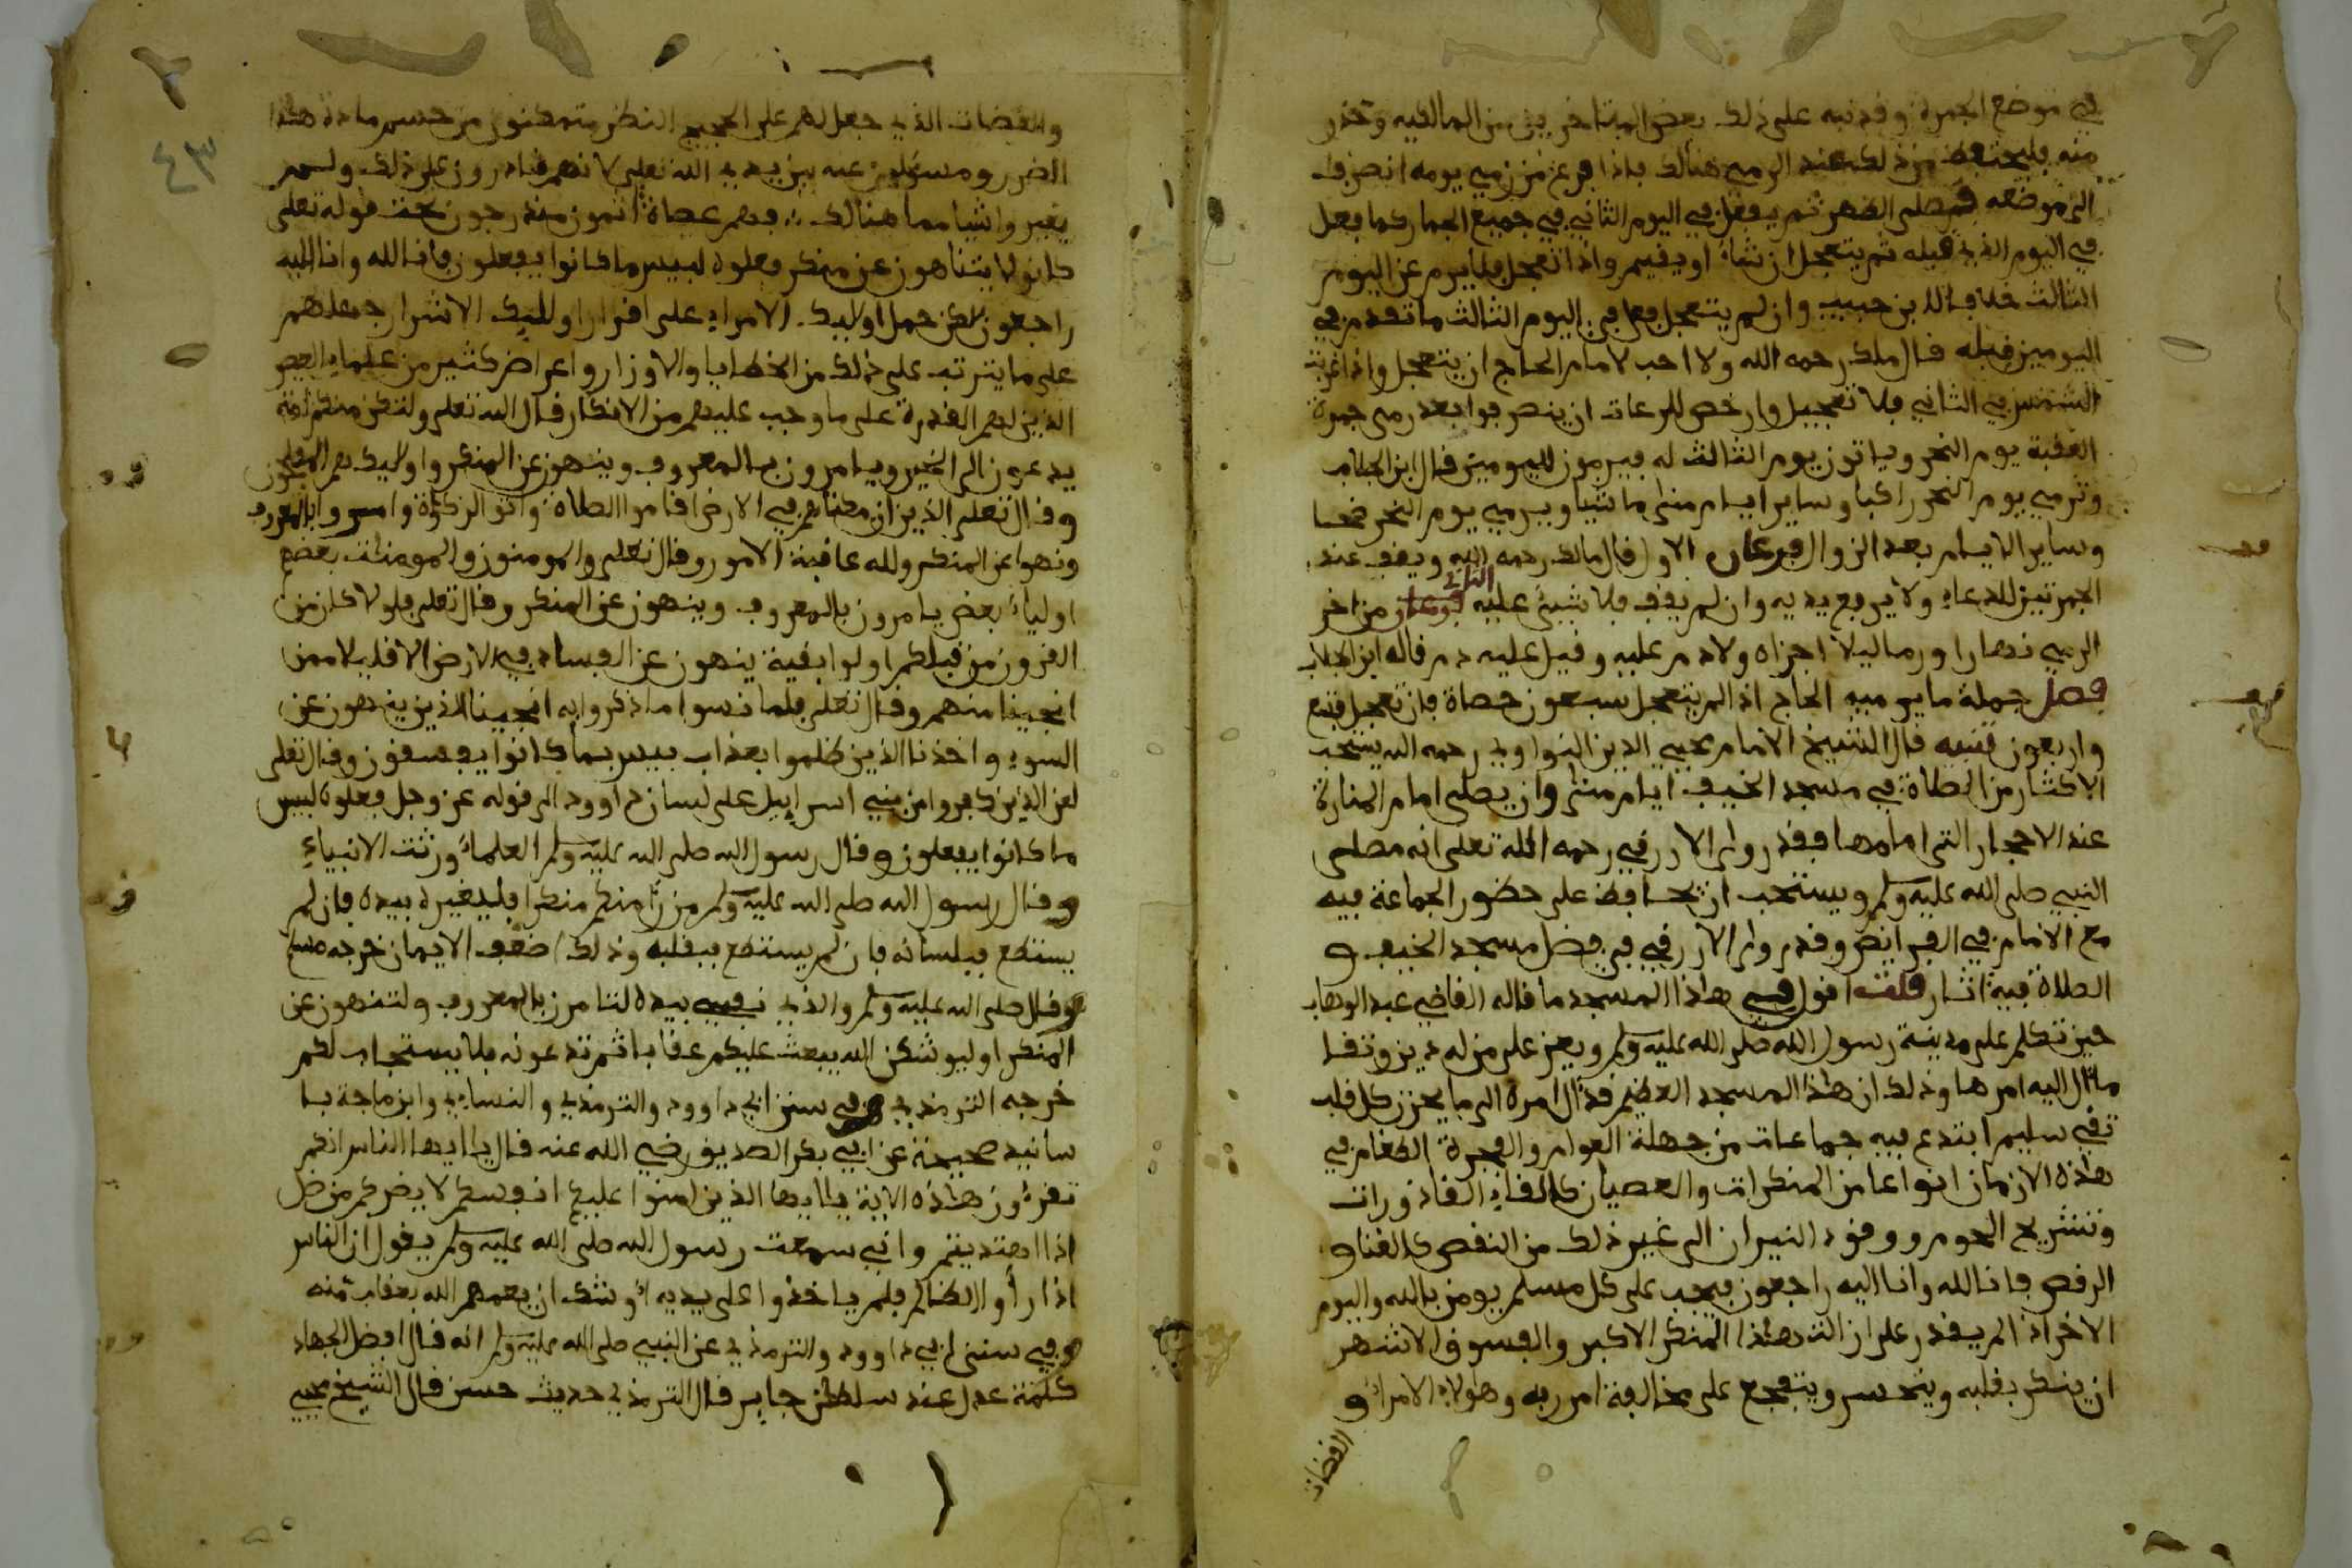 في موضع الجمرة وقد نبه على ذلك بعض المتاخرين من المالكيه وحذر
منه فليحتفظ من ذلك عند الرمي هنالك فاذا فرغ من رمي يومه انصرف
الى موضعه فيصلى الظهر ثم يفعل في اليوم الثاني في جميع الجمار كما فعل
في اليوم الذي قبله ثم يتعجل ان شاء او يقيم واذا تعجل فلا يرم عن اليوم
الثالث خلافا لابن حبيب وان لم يتعجل فعل في اليوم الثالث ما تقدم في
اليومين قبله قال ملك رحمه الله ولا احب لامام الحاج ان يتعجل واذا غربت
الشمس في الثاني فلا تعجيل وارخص للرعات ان ينصرفوا بعد رمي جمرة
العقبة يوم النحر وياتون يوم الثالث له فيرمون لليومين قال ابن الجلاب
وترمي يوم النحر راكبا وساير ايام منى ماشيا ويرمي يوم النحر ضحا
وساير الايام بعد الزوال فرعان الاول قال مالك رحمه الله ويقف عند
الجمرتين للدعاء ولا يرفع يديه وان لم يقف فلا شيئ عليه الثاني ومن اخر
الرمي نهارا ورما ليلا اجزاه ولا دم عليه وقيل عليه دم قاله ابن الجلاب
فصل جملة ما يرميه الحاج اذا لم يتعجل سبعون حصاة فان تعجل فتسع
واربعون تنبيه قال الشيخ الامام محيي الدين النواوي رحمه الله يستحب
الاكثار من الصلاة في مسجد الخيف ايام منى وان يصلى امام المنارة
عند الاحجار التى امامها فقد روى الازرقي رحمه الله تعلى انه مصلى
النبي صلى الله عليه وسلم ويستحب ان يحافظ على حضور الجماعة فيه
مع الامام في الفرائض وقد روى الازرقي في فضل مسجد الخيف و
الصلاة فيه اثار قلت اقول في هاذا المسجد ما قاله القاضي عبد الوهاب
حين تكلم على مدينة رسول الله صلى الله عليه وسلم ويعز على من له دين وتقا
مال اليه امرها وذلك ان هذا المسجد العظيم قد ال امره الى ما يحزن كل قلب
تقي سليم ابتدع فيه جماعات من جهلة العوام والفجرة الطغام في
هاذه الازمان انواعا من المنكرات والعصيان كالقاء القاذورات
وتشريح اللحوم ووقود النيران الى غير ذلك من النقص كالغناء و
الرقص فانا لله وانا اليه راجعون فيجب على كل مسلم يومن بالله واليوم
الاخر اذا لم يقدر على ازالت هاذا المنكر الاكبر والفسوق الاشهر
ان ينكر بقلبه ويتحسر ويتفجع على مخالفة امر ربه وهولاء الامراء و
القضات
٤٣
والقضات الذي جعل لهم على الحجيج النظر متمكنون من حسم مادة هذا
الضرر ومسئلون عنه بين يدي الله تعلى لانهم قادرون على ذلك ولم
يغيروا شيا مما هنالك فهم عصاة اثمون مندرجون تحت قوله تعلى
كانوا لا يتناهون عن منكر فعلوه لبيس ما كانوا يفعلون فانا لله وانا اليه
راجعون
على ما يترتب على ذلك من الخطايا والاوزار واعراض كثير من علماء العصر
الذين لهم القدرة على ما وجب عليهم من الانكار قال الله تعلى ولتكن منكم امة
يدعون الى الخير ويامرون بالمعروف وينهون عن المنكر واوليك هم المفلحون
وقال تعلى الذين ان مكناهم في الارض اقاموا الصلاة واتوا الزكاة وامروا بالمعروف
ونهوا عن المنكر ولله عاقبة الامور وقال تعلى والمومنون والمومنات بعضهم
اولياء بعض يامرون بالمعروف وينهون عن المنكر وقال تعلى فلولا كان من
القرون من قبلكم اولوا بقية ينهون عن الفساد في الارض الا قليلا ممن
انجينا منهم وقال تعلى فلما نسوا ما ذكروا به انجينا الذين ينهون عن
السوء واخذنا الذين ظلموا بعذاب بييس بما كانوا يفسقون وقال تعلى
لعن الذين كفروا من بني اسراءيل على لسان داوود الى قوله عز وجل فعلوه لبيس
ما كانوا يفعلون وقال رسول الله صلى الله عليه وسلم العلماء ورثت الانبياء
وقال رسول الله صلى الله عليه وسلم من رأا منكم منكرا فليغيره بيده فان لم
يستطع فبلسانه فان لم يستطع فبقلبه وذلك اضعف الايمان خرجه مسلم
وقال صلى الله عليه وسلم والذي نفسي بيده لتامرن بالمعروف ولتنهون عن
المنكر او ليوشكن الله يبعث عليكم عقابا ثم تدعونه فلا يستجاب لكم
خرجه الترمذي وفي سنن ابي داوود والترمذي والنساءي وابن ماجة با
سانيد صحيحة عن ابي بكر الصديق رضي الله عنه قال يا ايها الناس انكم
تقرءون هاذه الاية يا ايها الذين امنوا عليكم انفسكم لا يضركم من ضل
اذا اهتديتم واني سمعت رسول الله صلى الله عليه وسلم يقول ان الناس
اذا رأوا الظالم فلم ياخذوا على يديه اوشك ان يعمهم الله بعقاب منه
وفي سنن ابي داوود والترمذي عن النبي صلى الله عليه وسلم انه قال افضل الجهاد
كلمة عدل عند سلطن جاير قال الترمذي حديث حسن قال الشيخ محيي